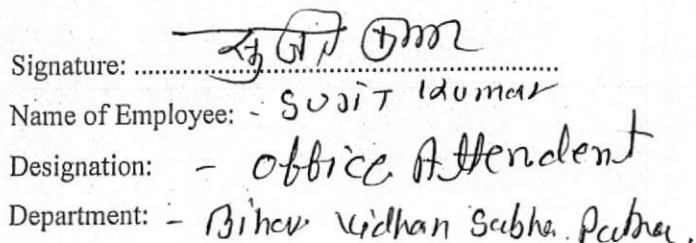 Signature: सुजीत कुमार
Name of Employee: - SUJIT Kumar
Designation: - Office Attendent
Department: - Bihar Vidhan Sabha. Patna.